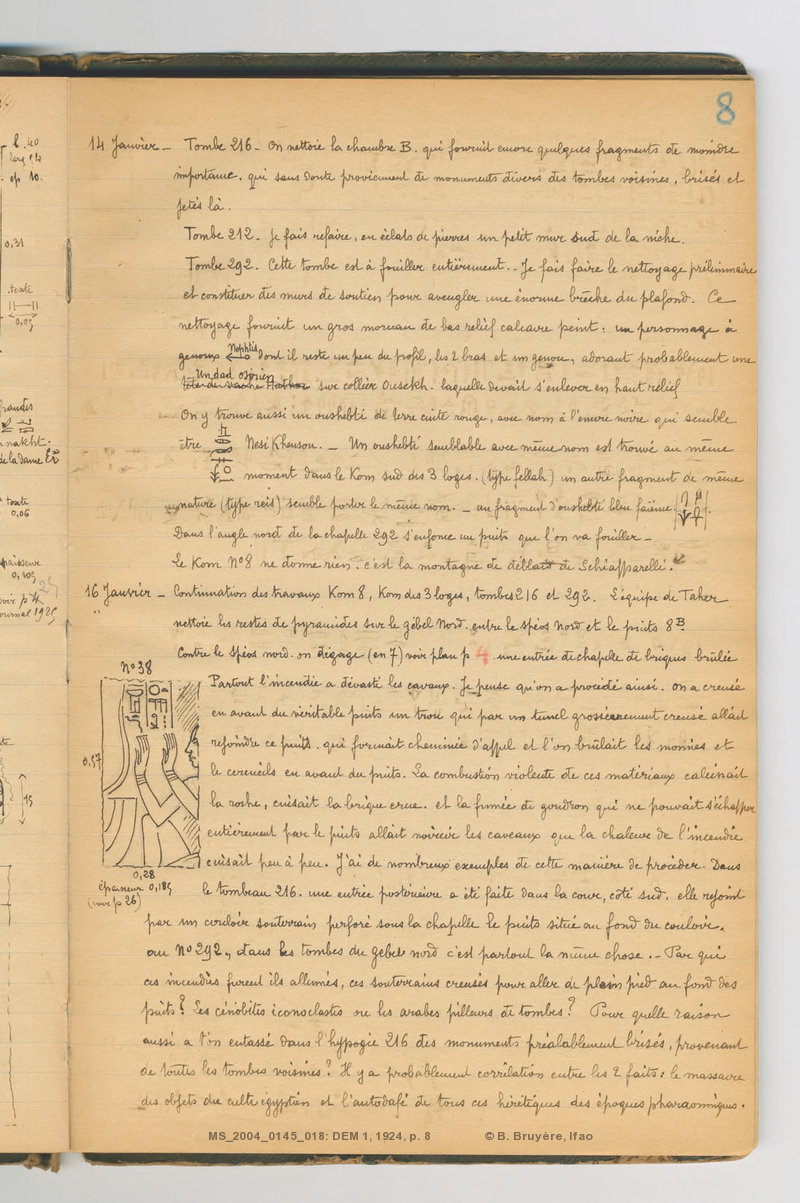 8
14 Janvier — Tombe 216 — On nettoie la chambre B. qui fournit encore quelques fragments de moindre
importance. qui sans doute proviennent de monuments divers des tombes voisines, brisés et
jetés là.
Tombe 212 — Je fais refaire, en éclats de pierres un petit mur sud de la niche.
Tombe 292. Cette tombe est à fouiller entièrement. — Je fais faire le nettoyage préliminaire
et constituer des murs de soutien pour aveugler une énorme brèche du plafond. Ce
nettoyage fournit un gros morceau de bas relief calcaire peint: un personnage à
genoux Nephtis dont il reste un peu du profil, les 2 bras et un genou, adorant probablement une
Un dad osirien
tête de vache Hathor sur collier Ousekh. laquelle devait s'enlever en haut relief
On y trouve aussi un oushebti de terre cuite rouge, avec nom à l'encre noire qui semble
être Nesi Khensou. — Un oushebti semblable avec même nom est trouvé au même
moment dans le Kom sud des 3 loges. (type fellah) un autre fragment de même
nature (type reis) semble porter le même nom. — un fragment d'oushebti bleu faïence
Dans l'angle nord de la chapelle 292 s'enfonce un puits que l'on va fouiller —
Le Kom N°8 ne donne rien. c'est la montagne de déblais de Schiapparelli.
16 Janvier — Continuation des travaux Kom 8, Kom des 3 loges, tombes 216 et 292. L'équipe de Taher
nettoie les restes de pyramides sur le gebel Nord. entre le spéos nord et le puits 8B
Contre le spéos nord. on dégage (en 7) voir plan p 4 une entrée de chapelle de briques brûlée
N°38
Partout l'incendie a dévasté les caveaux. Je pense qu'on a procédé ainsi. on a creusé
en avant du véritable puits un trou qui par un tunel grossièrement creusé allait
rejoindre ce puits. qui formait cheminée d'appel et l'on brûlait les momies et
0,57
le cercueils en avant du puits. La combustion violente de ces matériaux calcinait
la roche, cuisait la brique crue. et la fumée de goudron qui ne pouvait s'échapper
entièrement par le puits allait noircir les caveaux que la chaleur de l'incendie
cuisait peu à peu. J'ai de nombreux exemples de cette manière de procéder. Dans
0,28
épaisseur 0,185
(voir p 26)
le tombeau 216. une entrée postérieure a été faite dans la cour, côté sud. elle rejoint
par un couloir souterrain perforé sous la chapelle le puits situé au fond du couloir.
au N°292., dans les tombes du gebel nord c'est partout la même chose. — Par qui
ces incendies furent ils allumés, ces souterrains creusés pour aller de plain pied au fond des
puits? Les cénobites iconoclastes ou les arabes pilleurs de tombes? Pour quelle raison
aussi a t'on entassé dans l'hypogée 216 des monuments préalablement brisés, provenant
de toutes les tombes voisines? Il y a probablement corrélation entre les 2 faits: le massacre
des objets du culte égyptien et l'autodafé de tous ces hérétiques des époques pharaoniques.
0,31
texte
0,09
nakht.
de la dame
texte
0,06
épaisseur
0,105
journal 1925
15
MS_2004_0145_018: DEM 1, 1924, p. 8 © B. Bruyère, Ifao